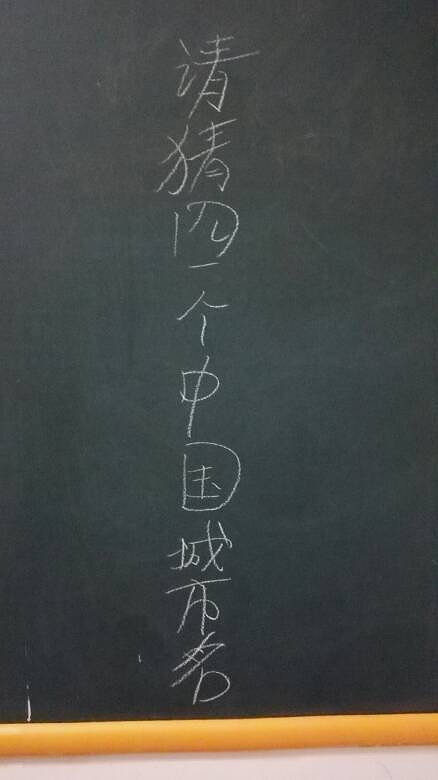 请猜四个中国城市名